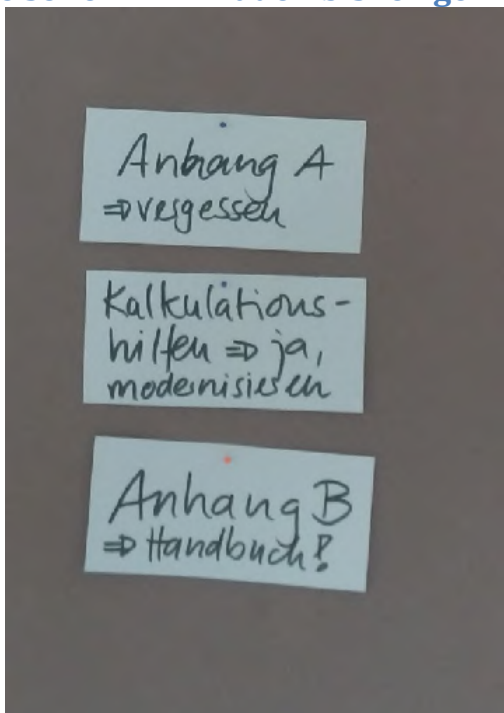 Anhang A
⇒ vergessen
Kalkulations-
hilfen ⇒ ja,
modernisieren
Anhang B
⇒ Handbuch!